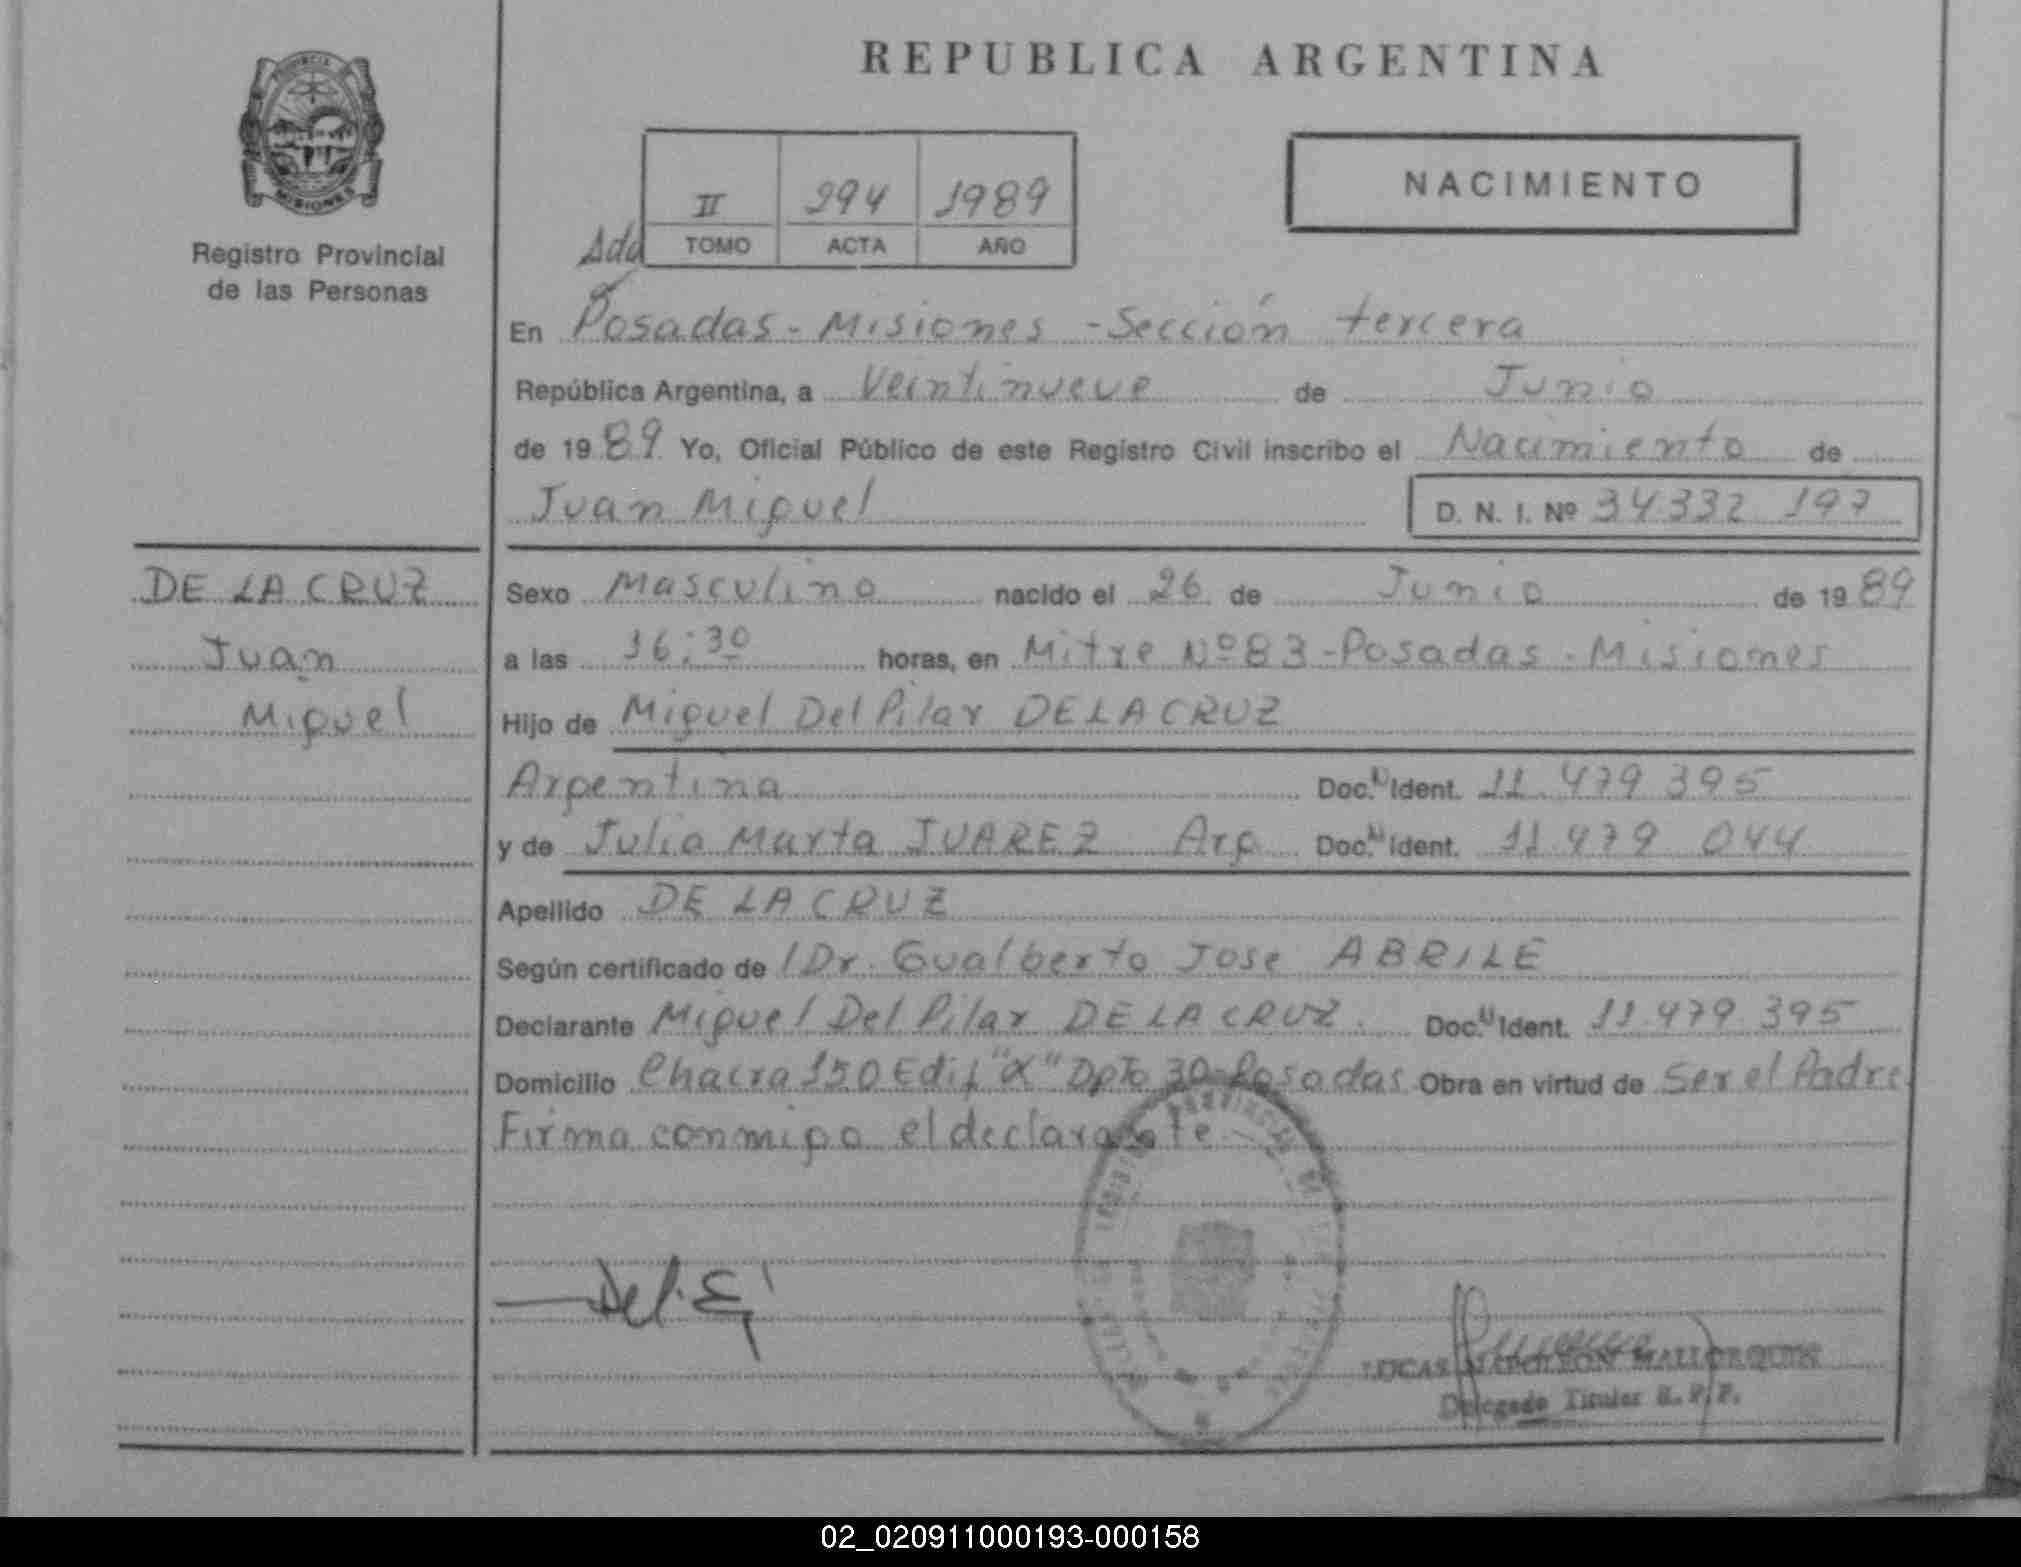 REPUBLICA ARGENTINA
PROVINCIA DE MISIONES
Registro Provincial
de las Personas
II 294 1989
TOMO ACTA AÑO
Add
NACIMIENTO
En Posadas - Misiones - Sección tercera
República Argentina, a Veintinueve de Junio
de 1989 Yo, Oficial Público de este Registro Civil inscribo el Nacimiento de
Juan Miguel D. N. I. Nº 34 332 197
DE LA CRUZ
Juan
Miguel
Sexo Masculino nacido el 26 de Junio de 1989
a las 16:30 horas, en Mitre Nº 83 - Posadas - Misiones
Hijo de Miguel Del Pilar DE LA CRUZ
Argentina Doc. N Ident. 11.479 395
y de Julia Marta JUAREZ Arg Doc. N Ident. 11 479 044
Apellido DE LA CRUZ
Según certificado de / Dr. Gualberto Jose ABRILE
Declarante Miguel Del Pilar DE LA CRUZ. Doc. U Ident. 11.479 395
Domicilio Chacra 150 Edif "X" Dpto 30 - Posadas Obra en virtud de Ser el Padre
Firma conmigo el declarante
LUCAS NAPOLEON MALLORQUIN
Delegado Titular R. P. P.
02_020911000193-000158